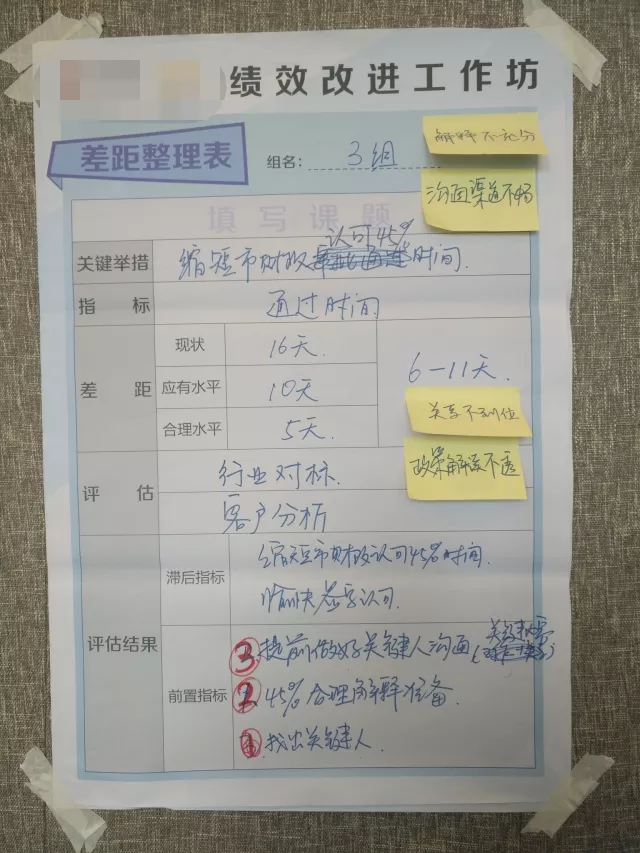 绩效改进工作坊
差距整理表
组名: 3组
解释不充分
沟通渠道不畅
填写课题
关键举措
认可45%
缩短市财政时间.
指标
通过时间
差距
现状
16天.
应有水平
10天
合理水平
5天.
6-11天.
关系不到位
政策解读不透
评估
行业对标.
客户分析
评估结果
滞后指标
缩短市财政认可45%时间.
愉快签字认可.
前置指标
3.提前做好关键人沟通(
2 45%合理解释准备.
1 找出关键人.